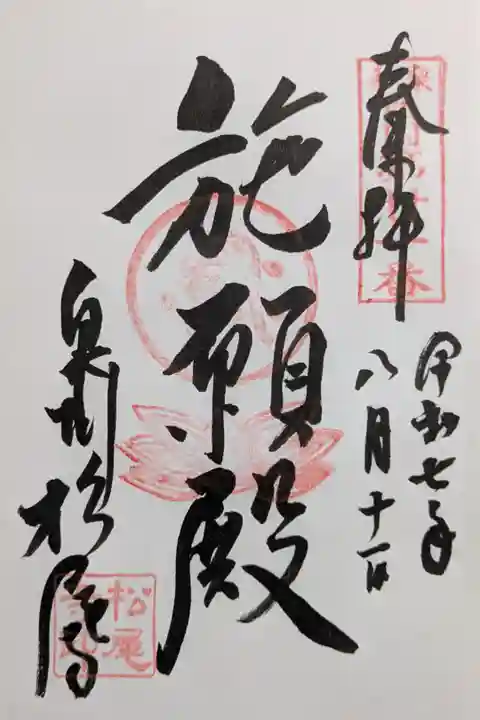 奉拝
令和七年
八月十一日
施願殿
泉州松尾寺
松尾